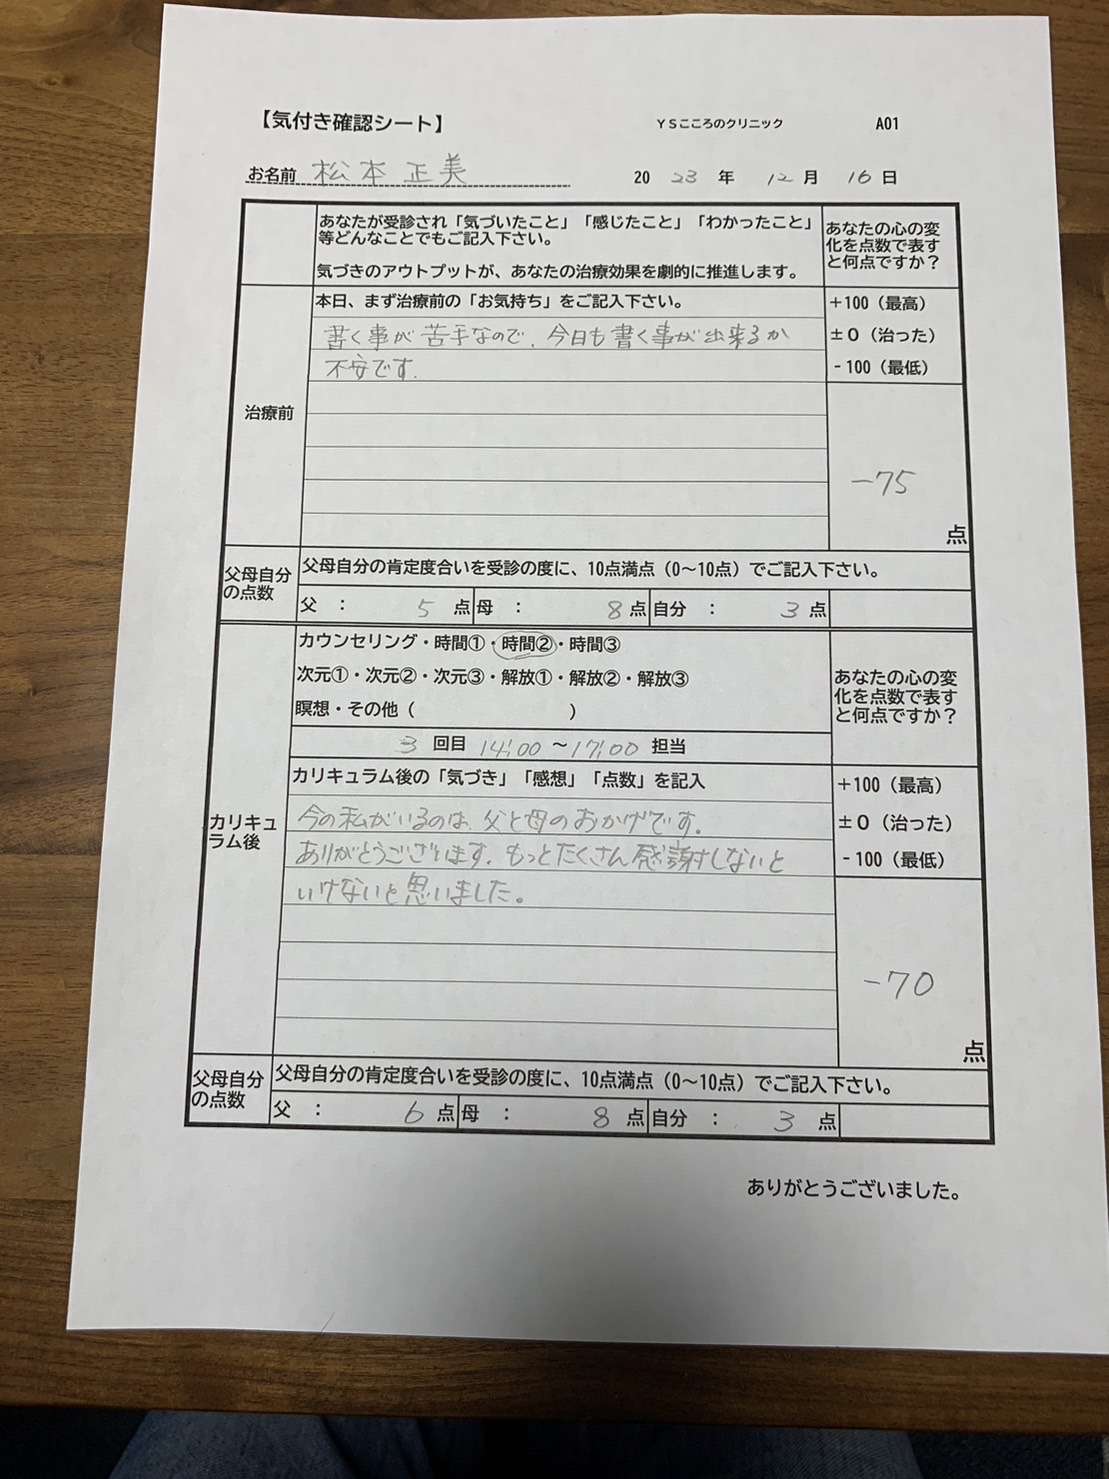 【気付き確認シート】 YSこころのクリニック A01
お名前 松本正美 2023年12月16日
あなたが受診され「気づいたこと」「感じたこと」「わかったこと」
等どんなことでもご記入下さい。
気づきのアウトプットが、あなたの治療効果を劇的に推進します。
あなたの心の変
化を点数で表す
と何点ですか？
治療前
本日、まず治療前の「お気持ち」をご記入下さい。
書く事が苦手なので、今日も書く事が出来るか
不安です.
+100（最高）
±0（治った）
-100（最低）
-75
点
父母自分
の点数
父母自分の肯定度合いを受診の度に、10点満点（0～10点）でご記入下さい。
父 ： 5 点 母 ： 8 点 自分 ： 3 点
カリキュ
ラム後
カウンセリング・時間①・時間②・時間③
次元①・次元②・次元③・解放①・解放②・解放③
瞑想・その他（ ）
3 回目 14:00 ～17:00 担当
あなたの心の変
化を点数で表す
と何点ですか？
カリキュラム後の「気づき」「感想」「点数」を記入
今の私がいるのは、父と母のおかげです。
ありがとうございます。もっとたくさん感謝しないと
いけないと思いました。
+100（最高）
±0（治った）
-100（最低）
-70
点
父母自分
の点数
父母自分の肯定度合いを受診の度に、10点満点（0～10点）でご記入下さい。
父 ： 6 点 母 ： 8 点 自分 ： 3 点
ありがとうございました。